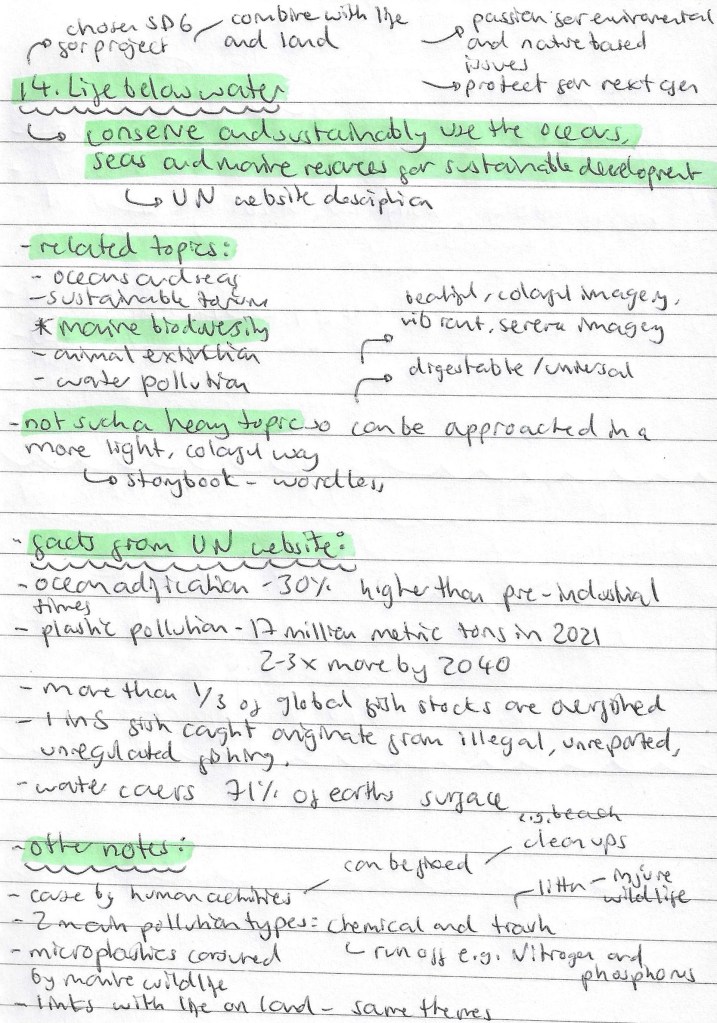 chosen SDG
for project
combine with life
and land
passion for enviromental
and nature based
issues
protect for next gen
14. Life below water
conserve and sustainably use the oceans,
seas and marine resorces for sustainable development
UN website desciption
- related topics:
- oceans and seas
- sustainable tourism
* marine biodiversity
- animal extinction
- water pollution
beatiful, colorful imagery,
vibrant, serene imagery
digestable / universal
- not such a heavy topic so can be approached in a
more light, colorful way
storybook - wordless
- facts from UN website:
- ocean adification - 30% higher than pre-industrial
times
- plastic pollution - 17 million metric tons in 2021
2-3x more by 2040
- more than 1/3 of global fish stocks are overfished
- 1 in 5 fish caught originate from illegal, unreported,
unregulated fishing.
- water covers 71% of earths surface
- other notes:
can be fixed
e.g. beach
clean ups
- cause by human activities
litter - injure
wildlife
- 2 main pollution types: chemical and trash
run off e.g. Nitrogen and
phosphorus
- microplastics consumed
by marine wildlife
- links with life on land - same themes